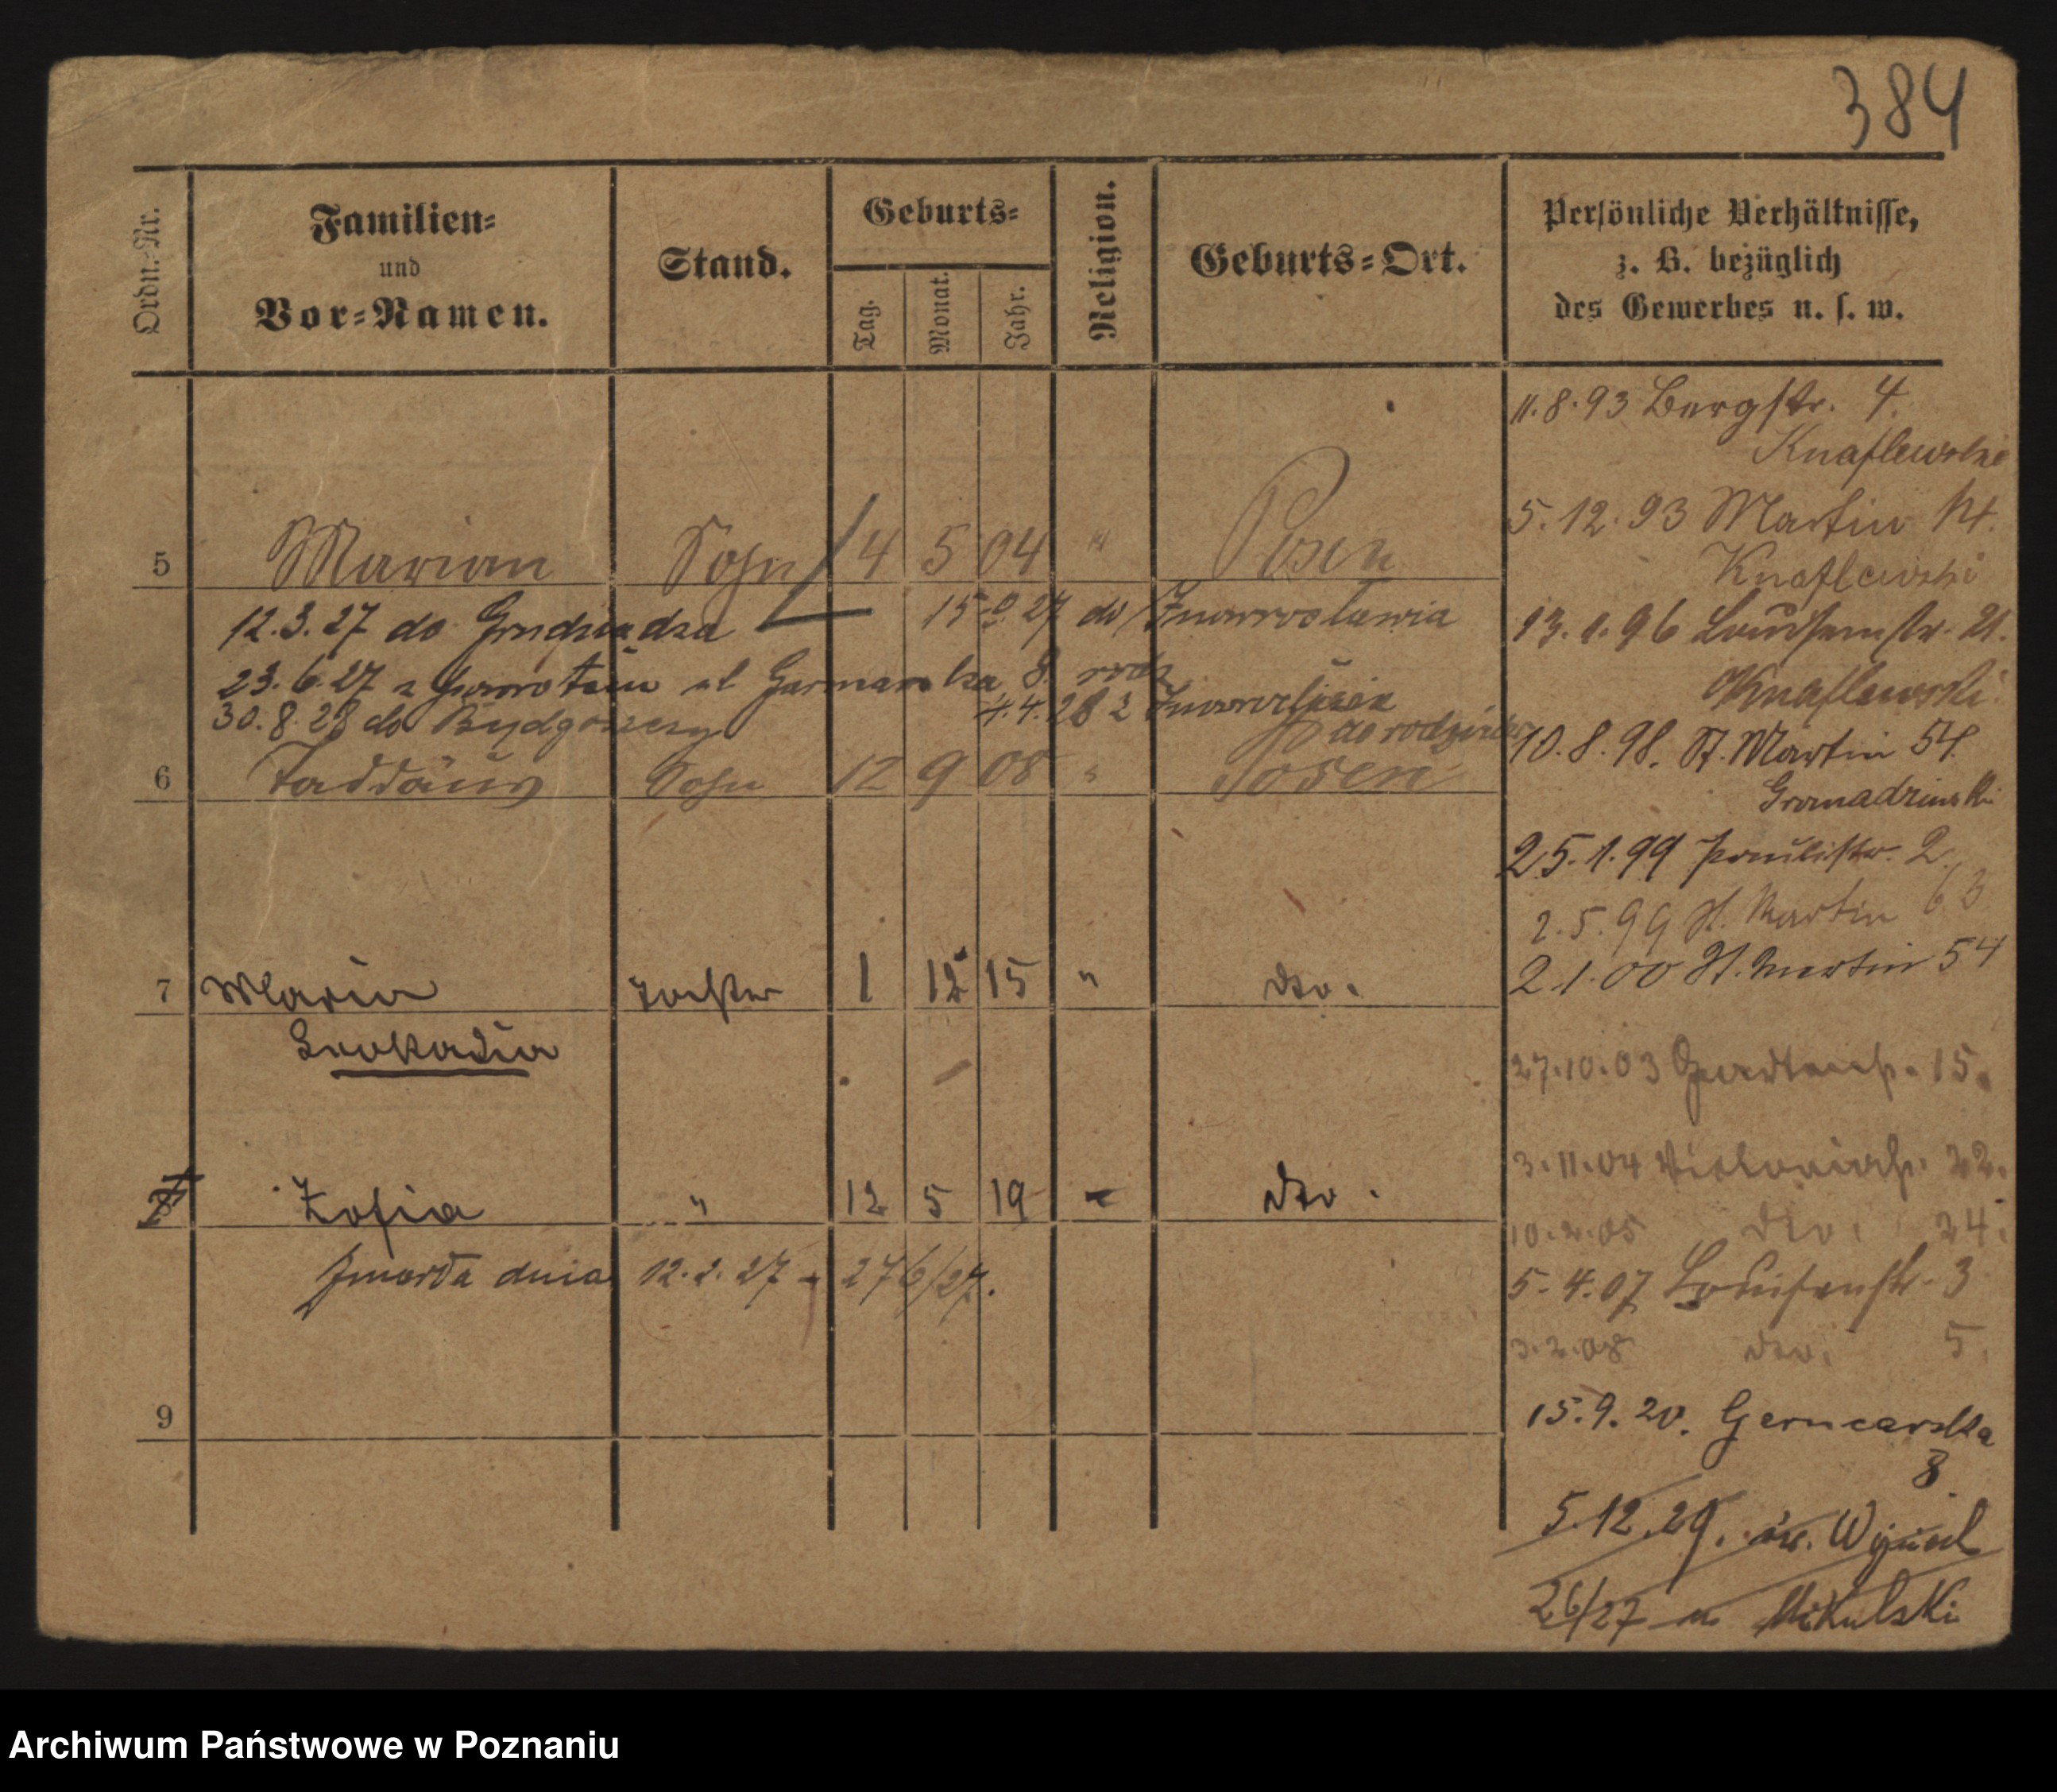 384
Ordn.-Nr.
Familien-
und
Vor-Namen.
Stand.
Geburts-
Tag.
Monat.
Jahr.
Religion.
Geburts-Ort.
Persönliche Verhältnisse,
z. B. bezüglich
des Gewerbes u. s. w.
5 Marian Sohn 4 5 04 " Posen
12.3.27 do Grudziądza 27 do Inowrocławia
23.6.27 z powrotem ul Garncarska 8
30.8.28 do Bydgoszczy 4.4.28 z Inowrocławia
do rodziców
6 Taddäus Sohn 12 9 08 " Posen
7 Maria Tochter 1 12 15 " dto.
Leokadia
8 Zofia " 12 5 19 dto.
Zmarła dnia 12.2.27 - 27/6/27.
9
11.8.93 Bergstr. 4.
Knaflewski
5.12.93 Martin 14.
Knaflewski
13.1.96 Louisenstr. 21.
Knaflewski
10.8.98. St. Martin 54.
Gromadzinski
25.1.99 Paulistr. 2.
2.5.99 St. Martin 63
2.1.00 St. Martin 54
27.10.03 15.
3.11.04 Victoriastr. 22.
10.2.05 dto. 24.
5.4.07 Louisenstr. 3
3.2.08 dto. 5.
15.9.20. Garncarska
8
5.12.29. św. Wojciech
26/27 m Mikulski
Archiwum Państwowe w Poznaniu